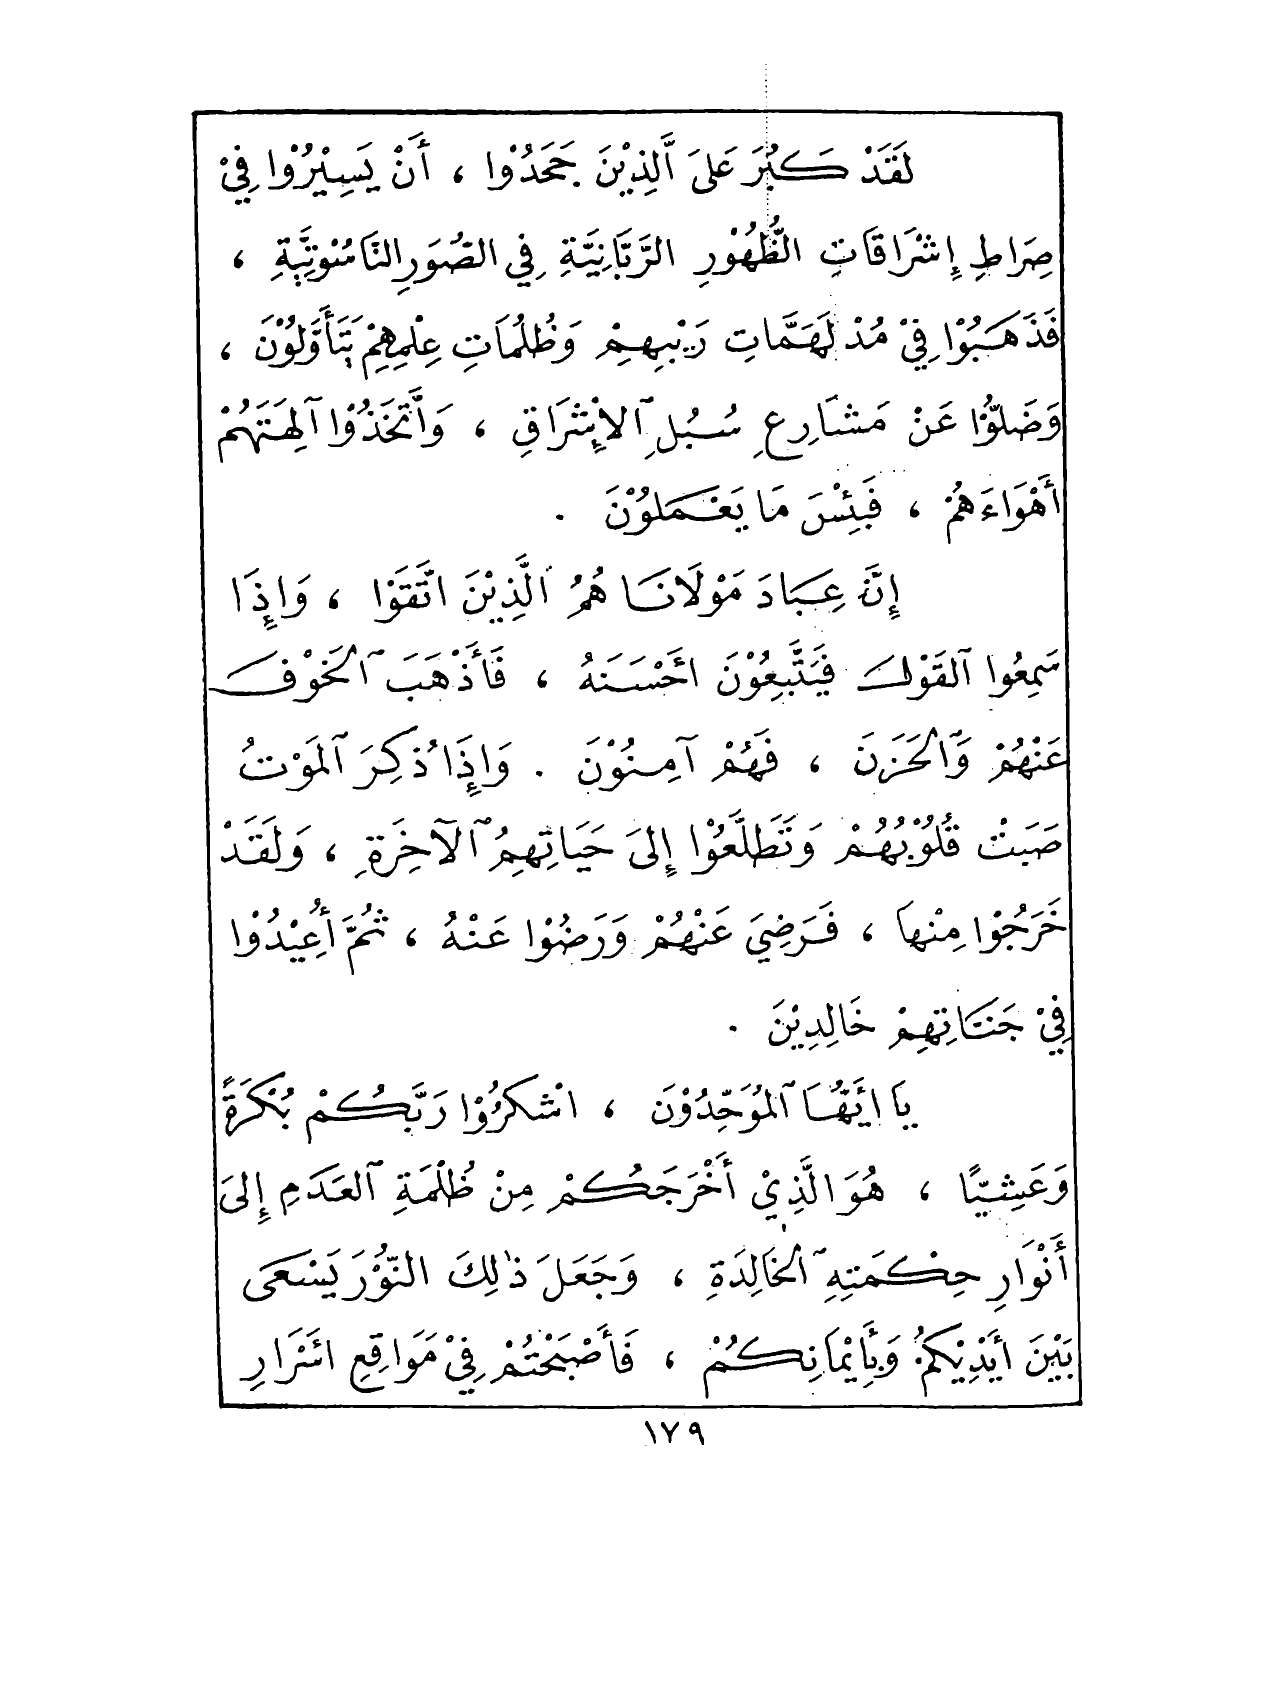 لَقَدْ كَبُرَ عَلَى ٱلَّذِيْنَ جَحَدُوْا ، أَنْ يَسِيْرُوْا فِيْ
صِرَاطِ إِشْرَاقَاتِ الظُّهُوْرِ الرَّبَّانِيَّةِ فِي الصُّوَرِ النَّاسُوْتِيَّةِ ،
فَذَهَبُوْا فِيْ مُدْلَهِمَّاتِ رَيْبِهِمْ وَظُلُمَاتِ عِلْمِهِمْ يَتَأَوَّلُوْنَ ،
وَضَلُّوْا عَنْ مَشَارِعِ سُبُلِ ٱلإِشْرَاقِ ، وَٱتَّخَذُوْا آلِهَتَهُمْ
أَهْوَاءَهُمْ ، فَبِئْسَ مَا يَعْمَلُوْنَ .
إِنَّ عِبَادَ مَوْلَانَا هُمُ الَّذِيْنَ اتَّقَوْا ، وَإِذَا
سَمِعُوا ٱلقَوْلَ فَيَتَّبِعُوْنَ أَحْسَنَهُ ، فَأَذْهَبَ ٱلخَوْفَ
عَنْهُمْ وَٱلحَزَنَ ، فَهُمْ آمِنُوْنَ . وَإِذَا ذُكِرَ ٱلمَوْتُ
صَبَتْ قُلُوْبُهُمْ وَتَطَلَّعُوْا إِلَى حَيَاتِهِمُ ٱلآخِرَةِ ، وَلَقَدْ
خَرَجُوْا مِنْهَا ، فَرَضِيَ عَنْهُمْ وَرَضُوْا عَنْهُ ، ثُمَّ أُعِيْدُوْا
فِيْ جَنَّاتِهِمْ خَالِدِيْنَ .
يَا أَيُّهَا ٱلمُوَحِّدُوْنَ ، اشْكُرُوْا رَبَّكُمْ بُكْرَةً
وَعَشِيًّا ، هُوَ الَّذِيْ أَخْرَجَكُمْ مِنْ ظُلْمَةِ ٱلعَدَمِ إِلَى
أَنْوَارِ حِكْمَتِهِ ٱلخَالِدَةِ ، وَجَعَلَ ذٰلِكَ النُّوْرَ يَسْعَى
بَيْنَ أَيْدِيْكُمْ وَبِأَيْمَانِكُمْ ، فَأَصْبَحْتُمْ فِيْ مَوَاقِعِ أَسْرَارِ
١٧٩